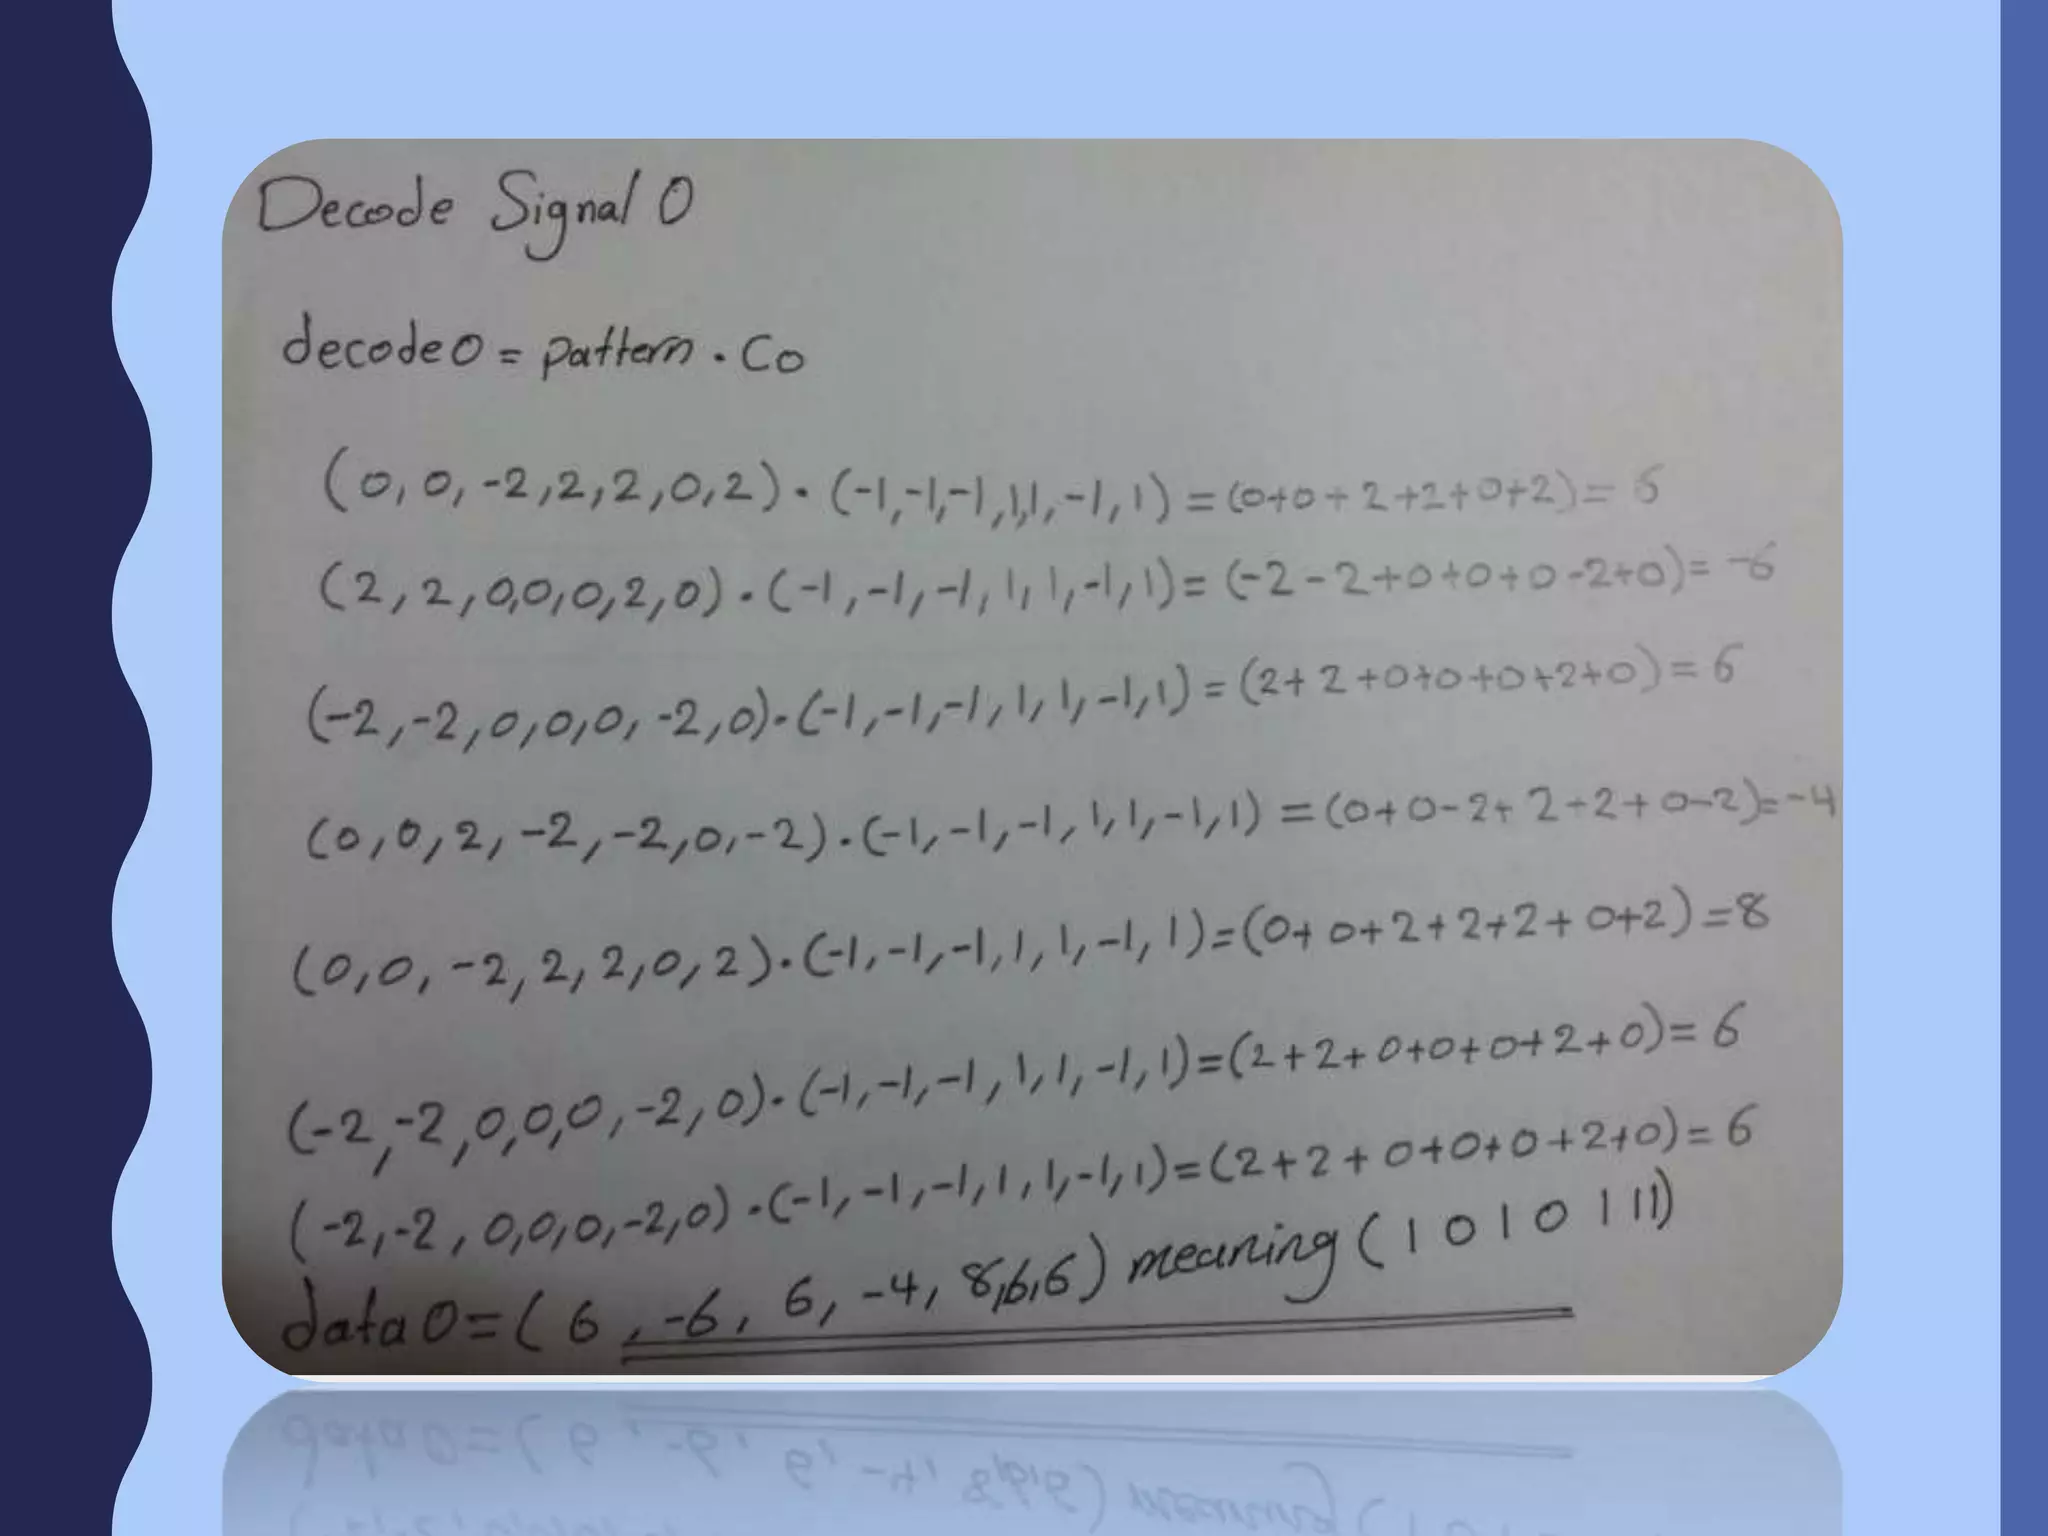 Decode Signal 0
decode0 = pattern . C0
(0,0,-2,2,2,0,2).(-1,-1,-1,1,1,-1,1) = (0+0+2+2+0+2) = 6
(2,2,0,0,0,2,0).(-1,-1,-1,1,1,-1,1) = (-2-2+0+0+0-2+0) = -6
(-2,-2,0,0,0,-2,0).(-1,-1,-1,1,1,-1,1) = (2+2+0+0+0+2+0) = 6
(0,0,2,-2,-2,0,-2).(-1,-1,-1,1,1,-1,1) = (0+0-2+2-2+0-2) = -4
(0,0,-2,2,2,0,2).(-1,-1,-1,1,1,-1,1) = (0+0+2+2+2+0+2) = 8
(-2,-2,0,0,0,-2,0).(-1,-1,-1,1,1,-1,1) = (2+2+0+0+0+2+0) = 6
(-2,-2,0,0,0,-2,0).(-1,-1,-1,1,1,-1,1) = (2+2+0+0+0+2+0) = 6
data0 = (6,-6,6,-4,8,6,6) meaning (1 0 1 0 1 1 1)